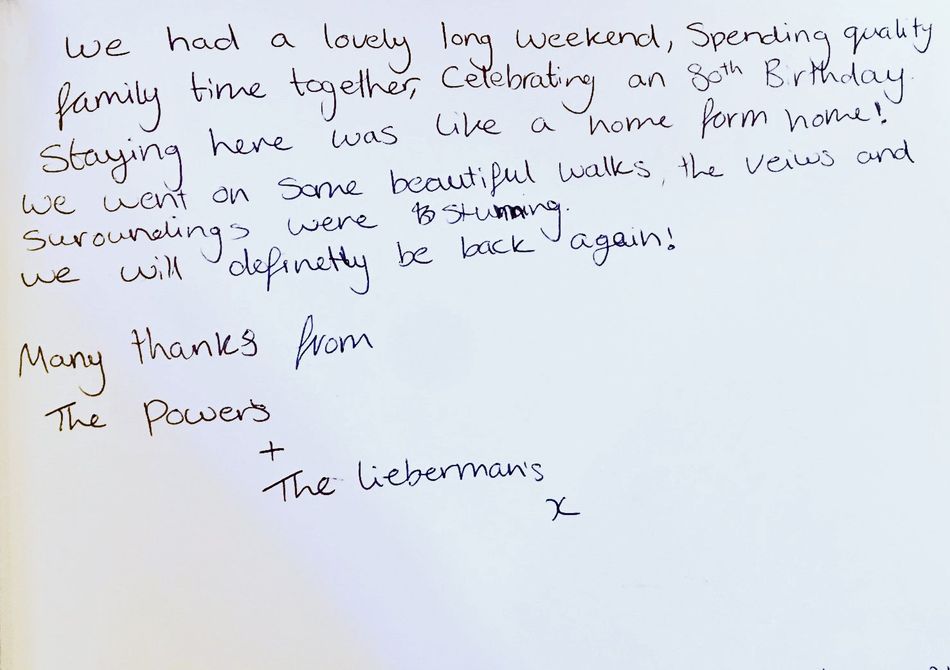 We had a lovely long weekend, Spending quality
family time together, Celebrating an 80th Birthday.
Staying here was like a home form home!
We went on some beautiful walks, the veiws and
Suroundings were stunning.
We will definetly be back again!
Many thanks from
The Powers
+
The Lieberman's
x